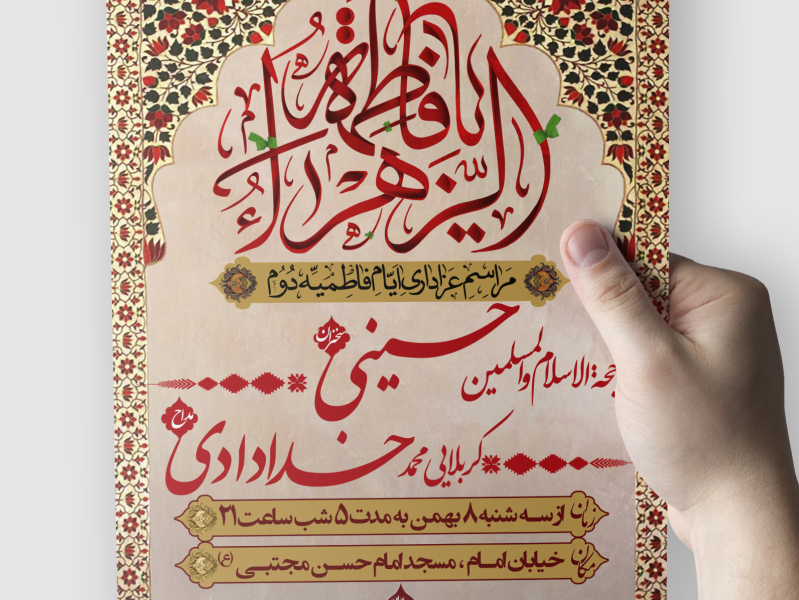 یا فاطمة
الزهراء
مراسم عزاداری ایام فاطمیه دوم
سخنران
حجة الاسلام والمسلمین حسینی
مداح
کربلایی محمد خدادادی
زمان از سه شنبه ۸ بهمن به مدت ۵ شب ساعت ۲۱
مکان خیابان امام ، مسجد امام حسن مجتبی (ع)